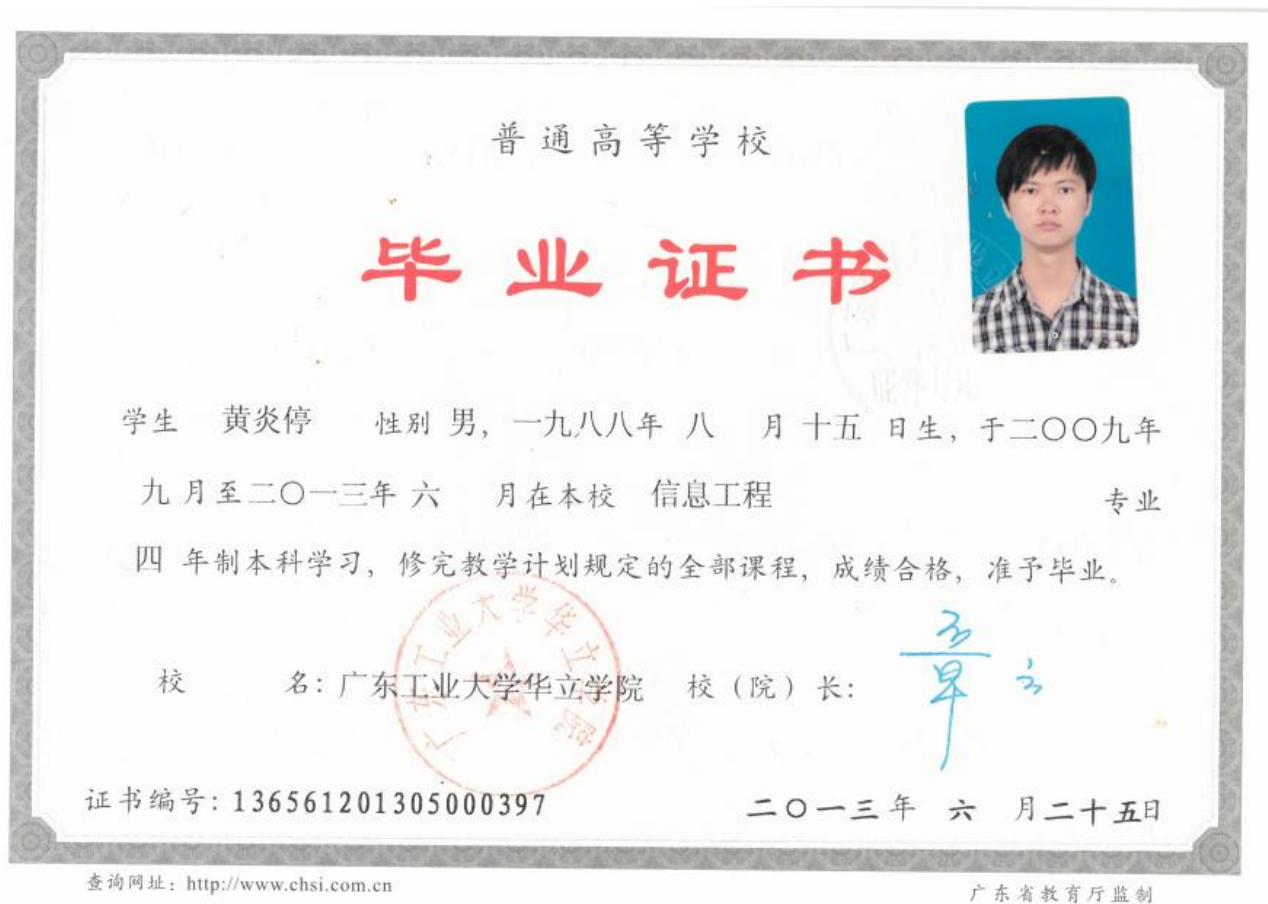 普通高等学校
毕业证书
学生 黄炎停 性别 男，一九八八年 八 月 十五 日生，于二〇〇九年
九 月至二〇一三年 六 月在本校 信息工程 专业
四 年制本科学习，修完教学计划规定的全部课程，成绩合格，准予毕业。
广东工业大学华立学院
校 名：广东工业大学华立学院 校（院）长：
证书编号：136561201305000397 二〇一三年 六 月二十五日
查询网址：http://www.chsi.com.cn 广东省教育厅监制